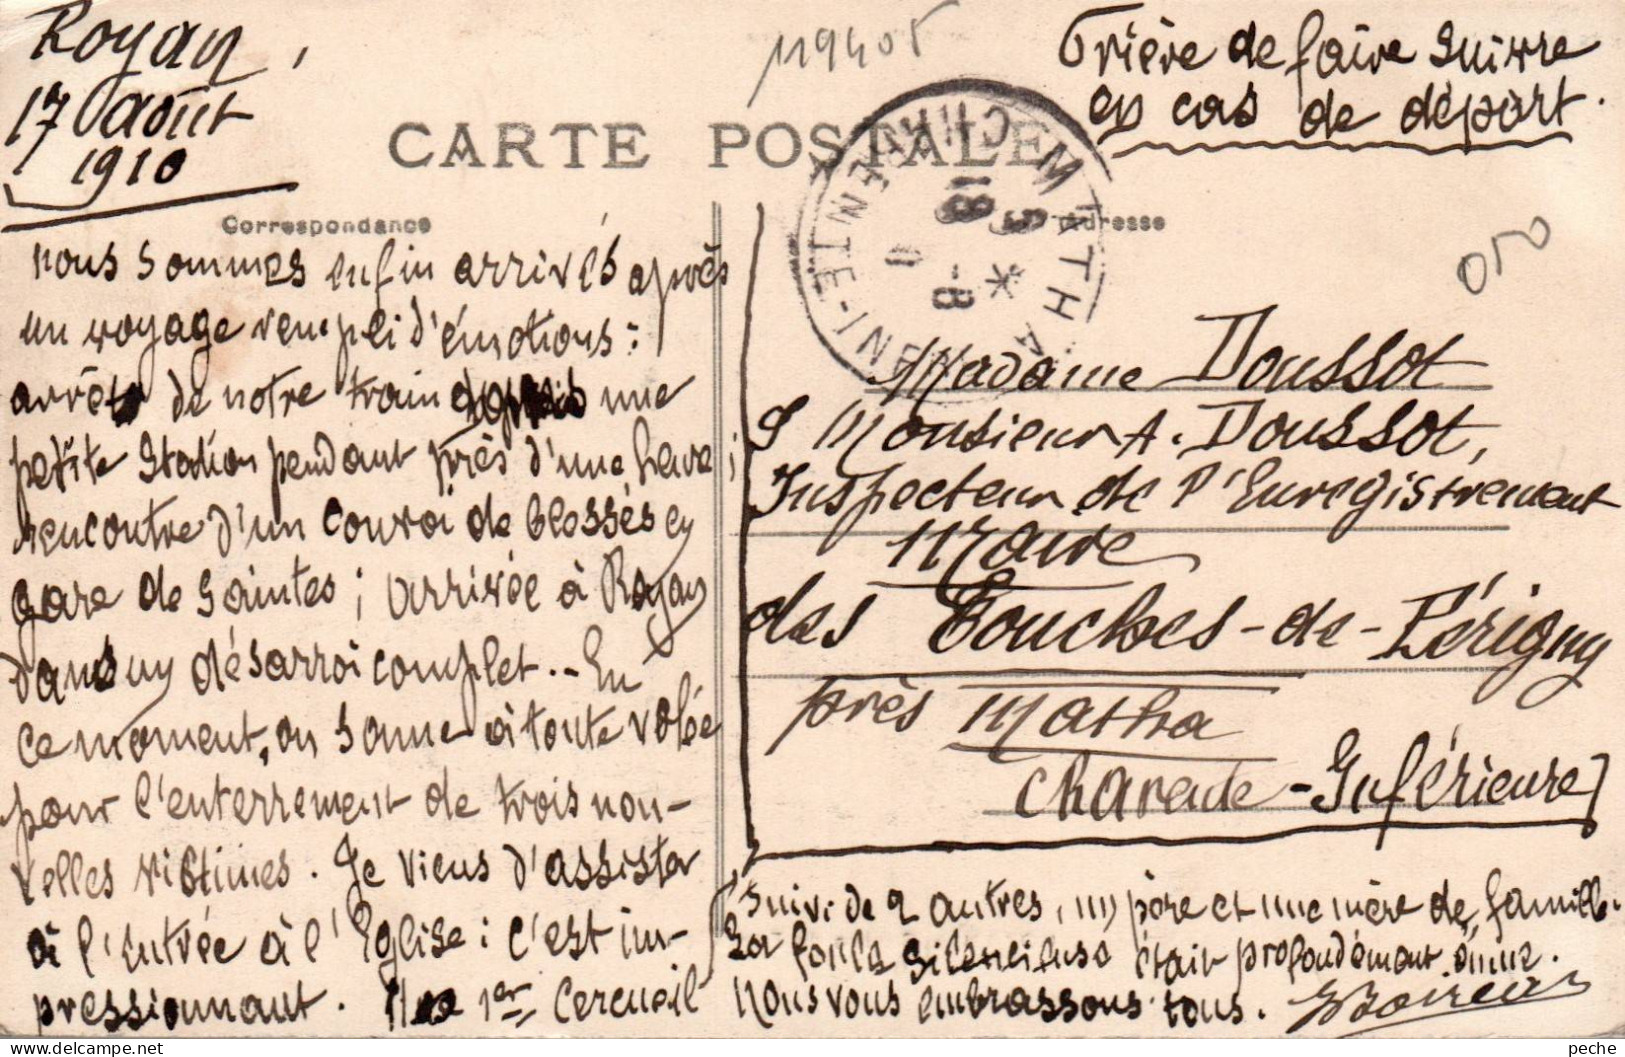 Royan,
17 août
1910
119405
Prière de faire suivre
en cas de départ.
CARTE POSTALE
Correspondance
Adresse
MATHA
CHARENTE-INF
18
8
050
nous sommes enfin arrivés après
un voyage rempli d'émotions :
arrêt de notre train une
petite station pendant près d'une heure ;
rencontre d'un convoi de blessés en
gare de Saintes ; arrivée à Royan
dans un désarroi complet. - En
ce moment, on sonne à toute volée
pour l'enterrement de trois nou-
velles victimes. Je viens d'assister
à l'entrée à l'Eglise : c'est im-
pressionnant. 1er Cercueil
suivi de 2 autres, un père et une mère de famille.
La foule silencieuse était profondément émue.
Nous vous embrassons tous.
Madame Doussot
& Monsieur A. Doussot,
Inspecteur de l'Enregistrement
Maire
des Touches-de-Périgny
près Matha
Charente-Inférieure
peche